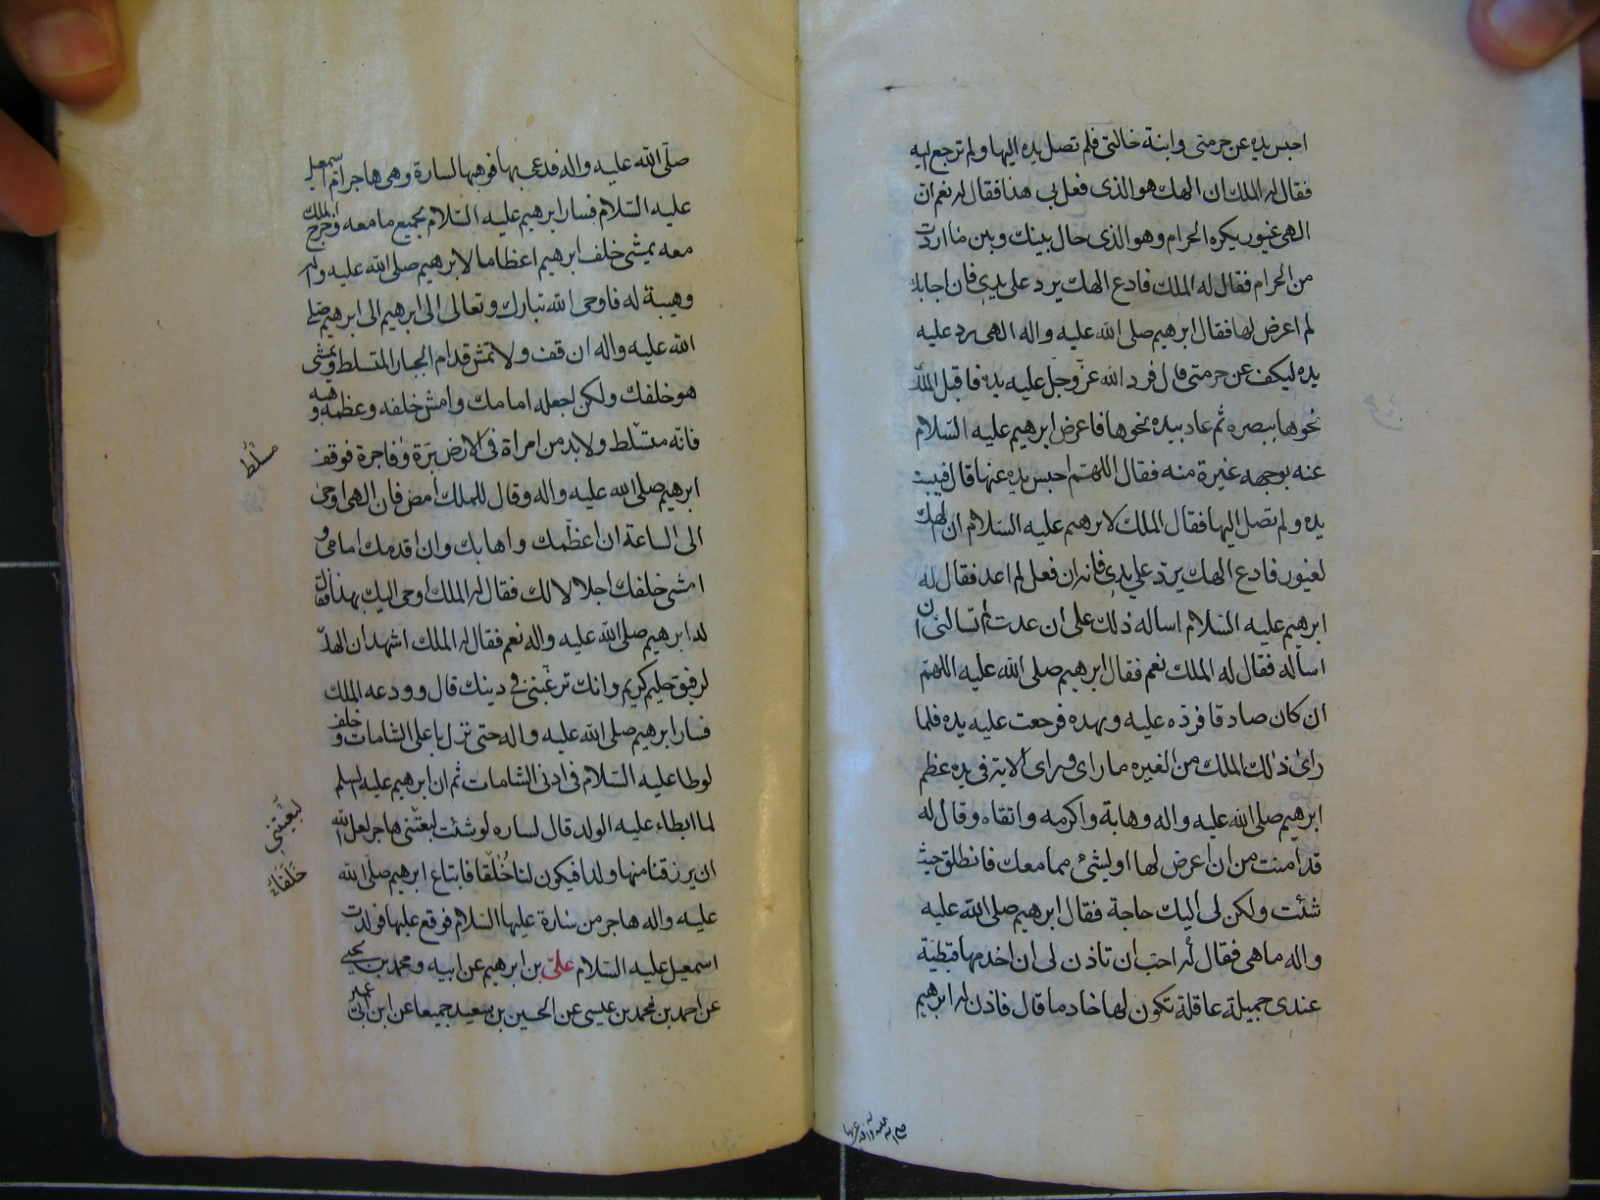 احبس يده عن حرمتى وابنة خالتى فلم تصل يده اليها ولم ترجع اليه
فقال له الملك ان الهك هو الذى فعل بى هذا فقال له نعم ان
الهى غيور يكره الحرام وهو الذى حال بينك وبين ما اردت
من الحرام فقال له الملك فادع الهك يرد على يدى فان اجابك
لم اعرض لها فقال ابرهيم صلى الله عليه واله الهى رد عليه
يده ليكف عن حرمتى قال فرد الله عزّ وجل عليه يده فاقبل الملك
نحوها ببصره ثم عاد بيده نحوها فاعرض ابرهيم عليه السّلام
عنه بوجهه غيرة منه فقال اللهتم احبس يده عنها قال فيبست
يده ولم تصل اليها فقال الملك لابرهيم عليه السّلام ان الهك
لغيور فادع الهك يردّ على يدى فانه ان فعل لم اعد فقال له
ابرهيم عليه السّلام اساله ذلك على ان عدت لم تسالنى ان
اسأله فقال له الملك نعم فقال ابرهيم صلى الله عليه اللهتم
ان كان صادقا فردّه عليه ويده فرجعت عليه يده فلما
راى ذلك الملك من الغيره ما راى وراى الاية فى يده عظم
ابرهيم صلى الله عليه واله وهابة واكرمه واتقاه وقال له
قد امنت من ان اعرض لها او لشئ مما معك فانطلق حيث
شئت ولكن لى اليك حاجة فقال ابرهيم صلى الله عليه
واله ما هى فقال له احب ان تاذن لى ان اخدمها قبطية
عندى جميلة عاقلة تكون لها خادما قال فاذن له ابرهيم
صلّى الله عليه واله فدعى بها فوهبها لسارة وهى هاجر ام اسمعيل
عليه السّلام فسار ابرهيم عليه السّلام بجميع ما معه وخرج الملك
معه يمشى خلف ابرهيم اعظاما لابرهيم صلى الله عليه واله
وهيبة له فاوحى الله تبارك وتعالى الى ابرهيم الى ابرهيم صلى
الله عليه واله ان قف ولا تمش قدام الجبار المتسلط ويمشى
هو خلفك ولكن اجعله امامك وامش خلفه وعظمه وهبه
فانّه متسّلط ولا بد من امراة فى الارض برّة وفاجرة فوقف
مسُلط
ابرهيم صلى الله عليه واله وقال للملك امض فان الهى اوحى
الى الساعة ان اعظّمك واهابك وان اقدمك امامى و
امشى خلفك اجلالا لك فقال له الملك اوحى اليك بهذا فقال
له ابرهيم صلى الله عليه واله نعم فقال له الملك اشهد ان الهك
لرفيق حليم كريم وانك ترغّبنى فى دينك قال وودعه الملك
فسار ابرهيم صلى الله عليه واله حتى نزل باعلى الشامات وخلف
لوطا عليه السّلام فى ادنى الشامات ثم ان ابرهيم عليه السلم
لما ابطاء عليه الولد قال لساره لو شئت لبعتنى هاجر لعل الله
لبعتنى
ان يرزقنا منها ولدا فيكون لنا خُلْقا فابتاع ابرهيم صلى الله
خلفاً
عليه واله هاجر من سارة عليها السّلام فوقع عليها فولدت
اسمعيل عليه السّلام علىّ بن ابرهيم عن ابيه ومحمد بن يحيى
عن احمد بن محمد بن عيسى عن الحسين بن سعيد جميعا عن ابن ابى عمير